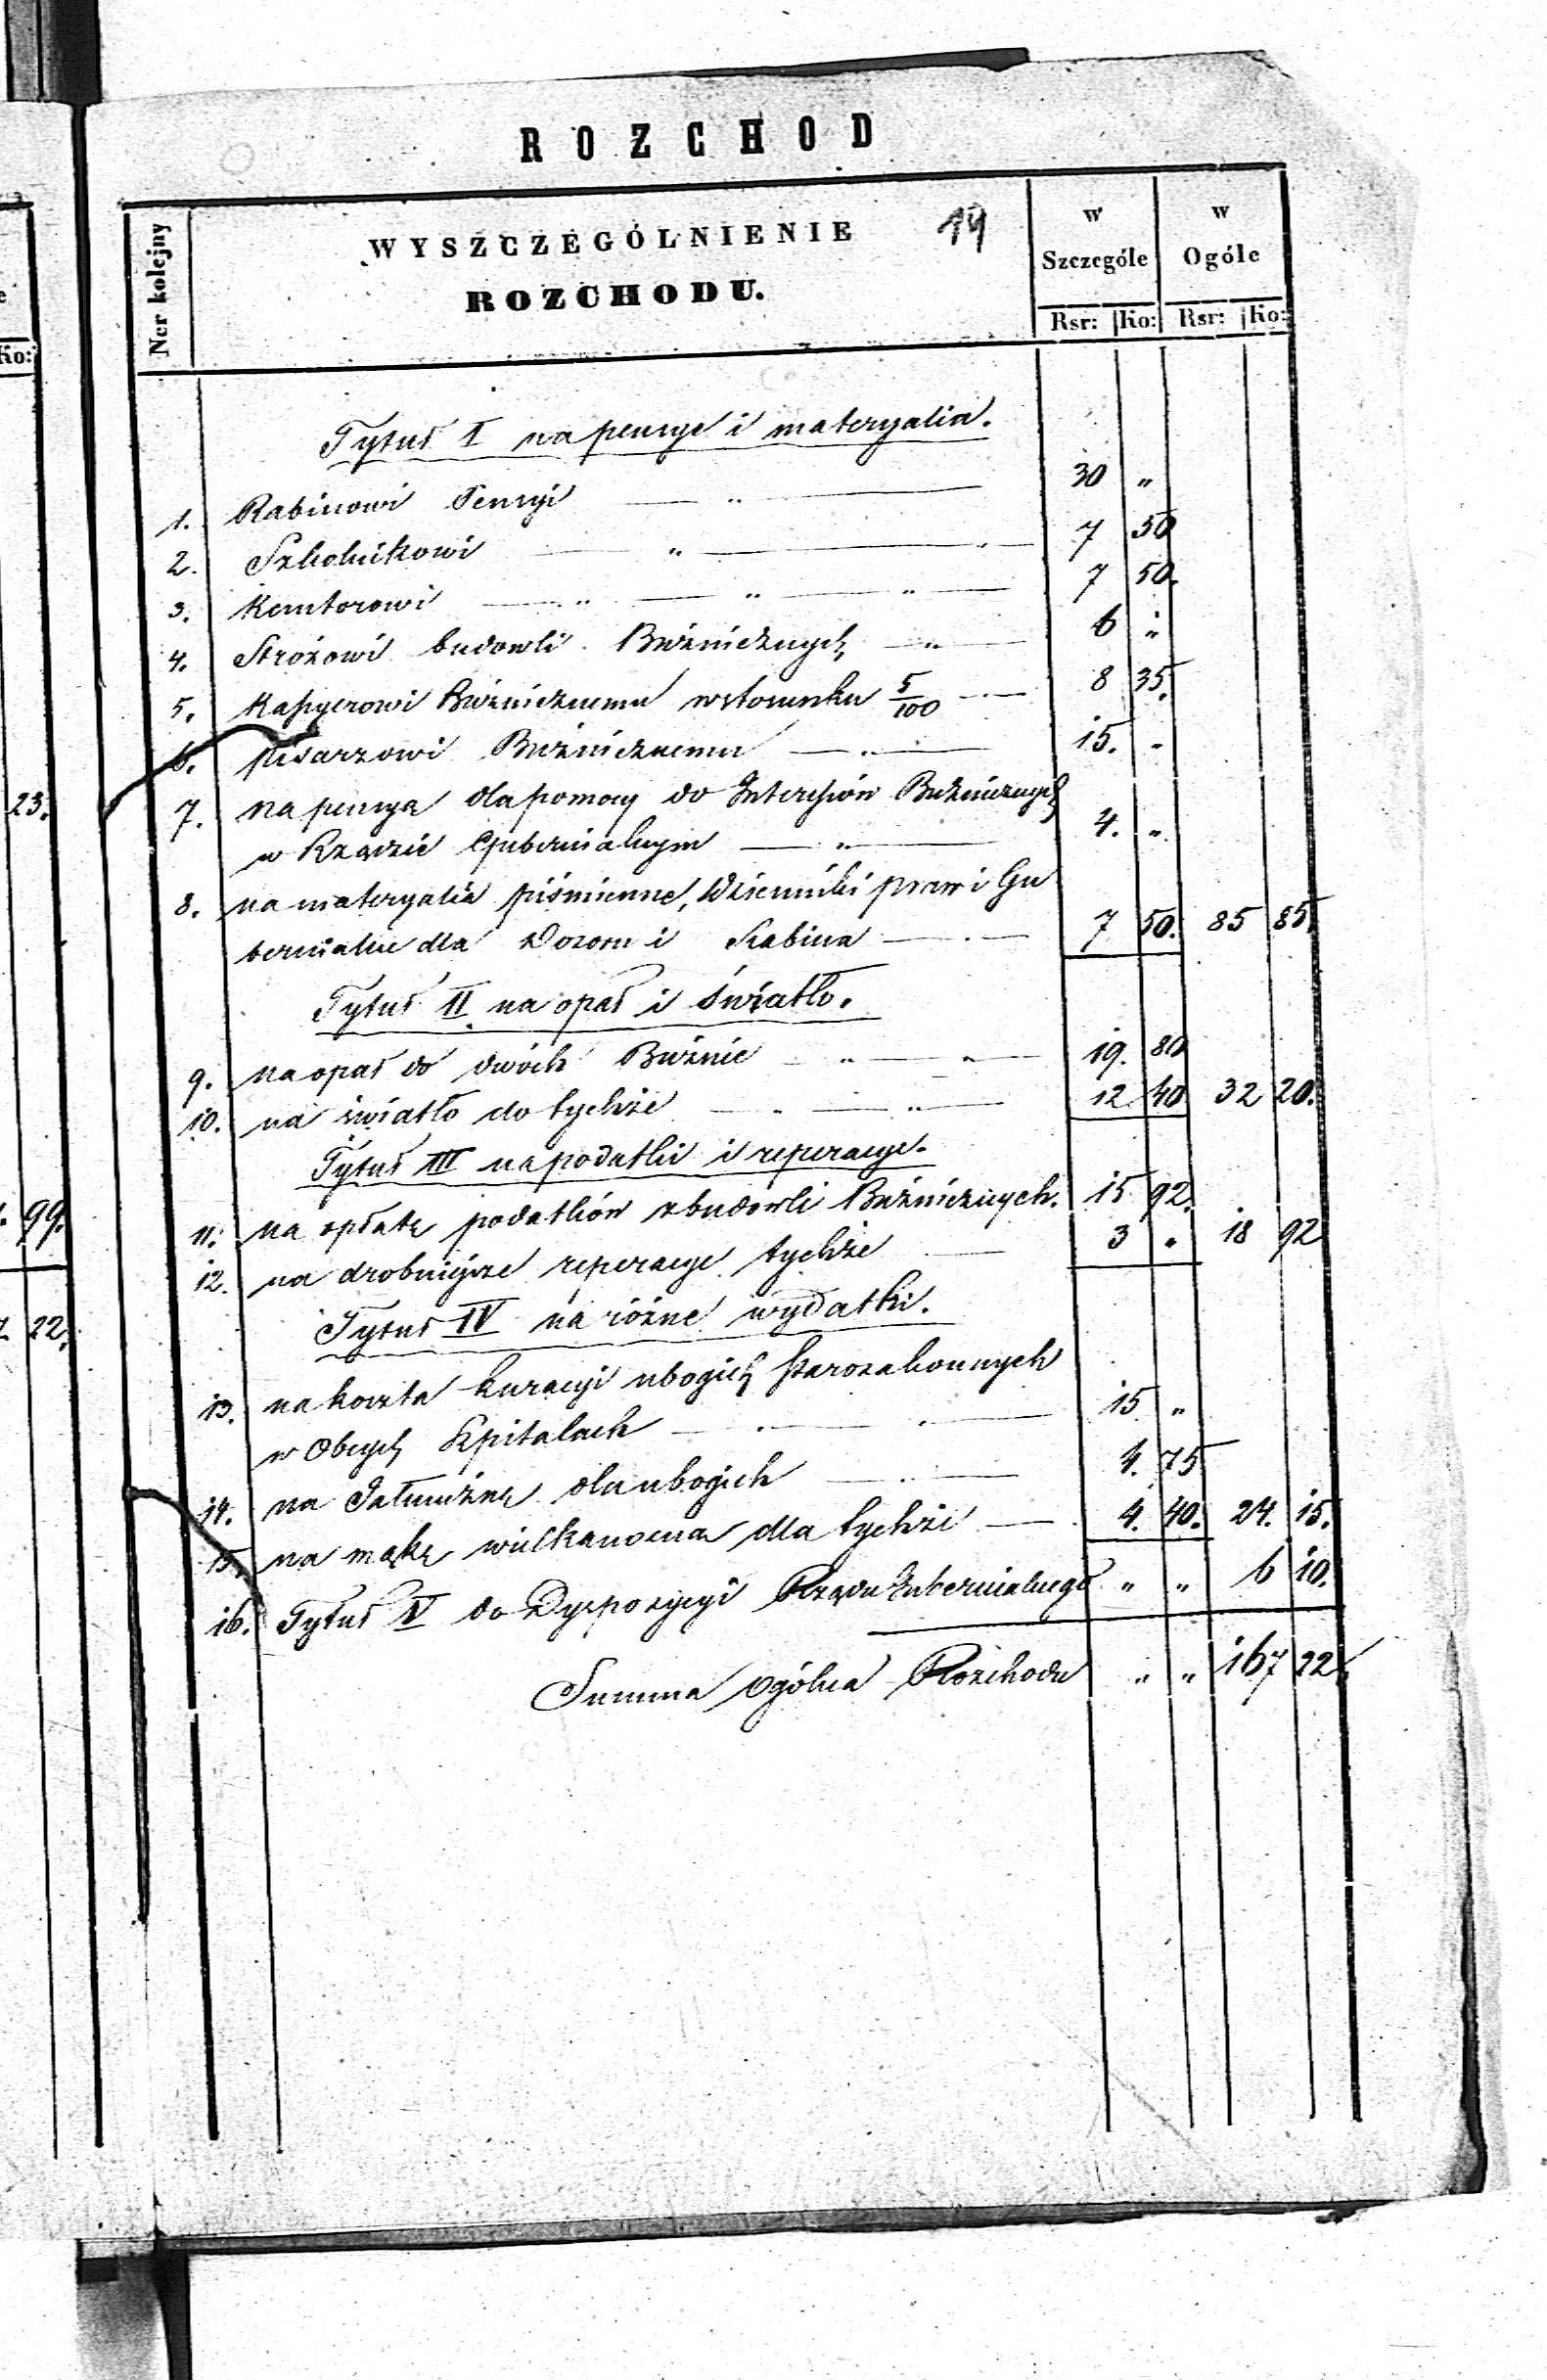 ROZCHOD
Ner kolejny
WYSZCZEGÓLNIENIE 19
ROZCHODU.
w Szczególe
w Ogóle
Rsr: Ko: Rsr: Ko:
Ko:
Tytuł I na pensye i materyalia.
1. Rabinowi Pensyi 30 "
2. Szkolnikowi " 7 50
3. Kantorowi " " " 7 50.
4. Stróżowi budowli Bużnicznych " 6 "
5. Kassyerowi Bużnicznemu w stosunku 5/100 8 35.
6. pisarzowi Bużnicznemu " 15. "
7. na pensya dla pomocy do Interessów Bużnicznych
w Rządzie Gubernialnym " 4. "
8. na materyalia piśmienne, Dzienniki praw i Gu
bernialne dla Dozoru i Rabina 7 50. 85 85.
Tytuł II na opał i światło.
9. na opał do dwóch Bużnic " " 19. 80
10. na światło do tychże " " 12 40 32 20.
Tytuł III na podatki i reperacye.
11. na opłatę podatków z budowli Bużnicznych. 15 92.
12. na drobniejsze reperacye tychże 3 " 18 92
Tytuł IV na różne wydatki.
13. na koszta kuracyi ubogich starozakonnych
w Obcych Szpitalach 15 "
14. na Jałmużnę dla ubogich 4. 75
15. na mąkę wielkanocna dla tychże 4. 40. 24. 15.
16. Tytuł V do Dyspozycyi Rządu Gubernialnego " " 6 10.
Summa ogólna Rozchodu " " 167 22
23.
99.
22.